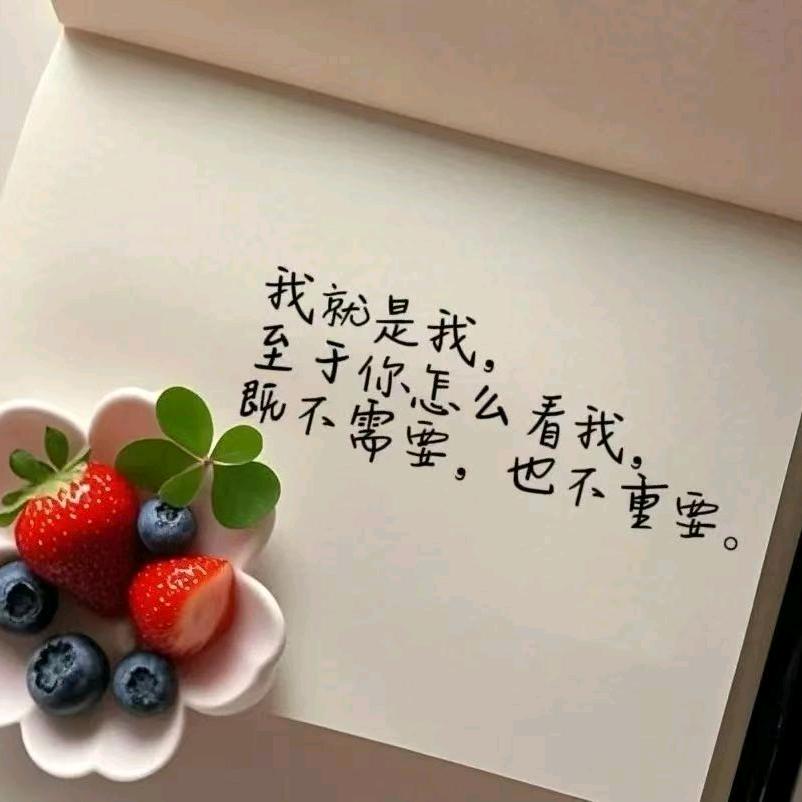 我就是我，
至于你怎么看我，
既不需要，也不重要。